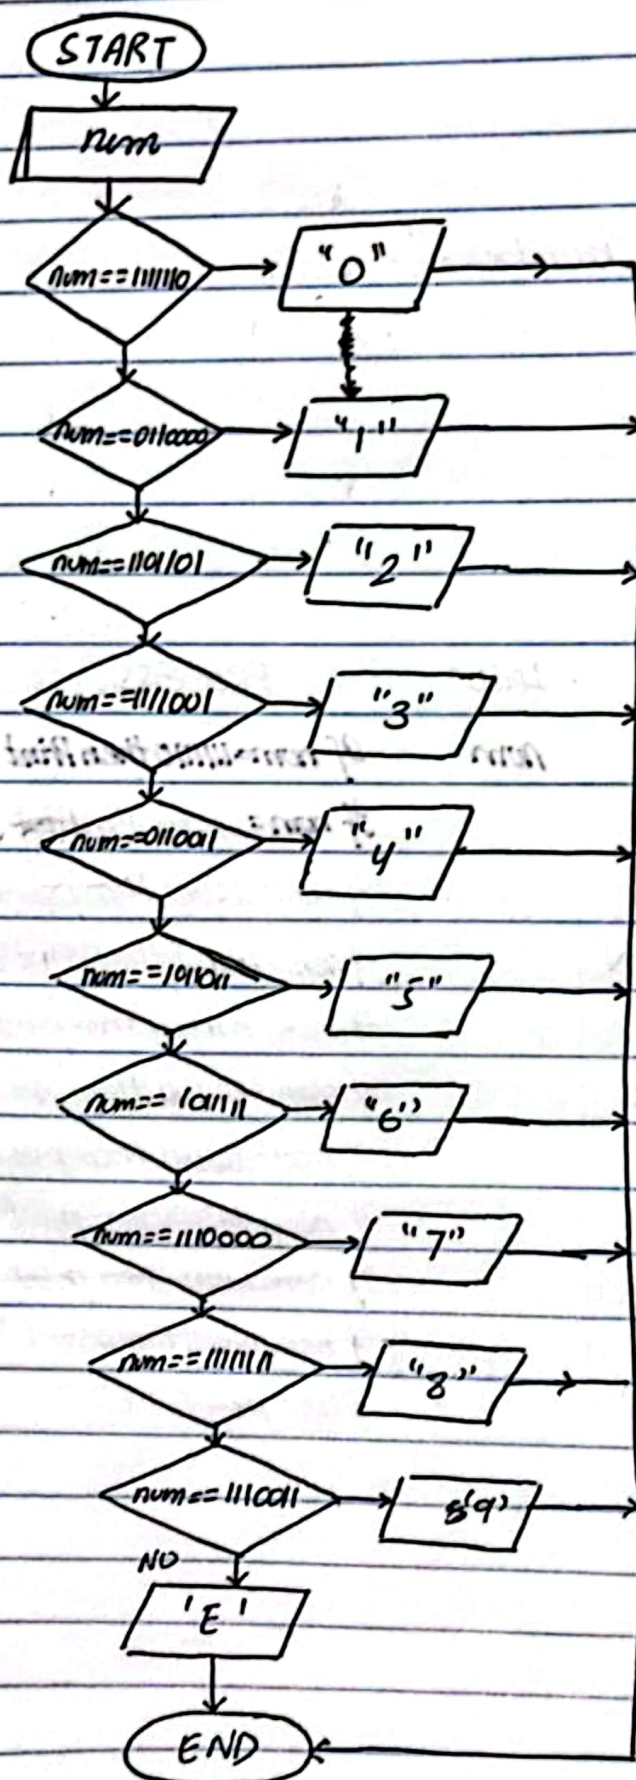 START
num
num==1111110
"0"
num==0110000
"1"
num==1101101
"2"
num==1111001
"3"
num==0110011
"4"
num==1011011
"5"
num==1011111
"6"
num==1110000
"7"
num==1111111
"8"
num==1110011
NO
'E'
END